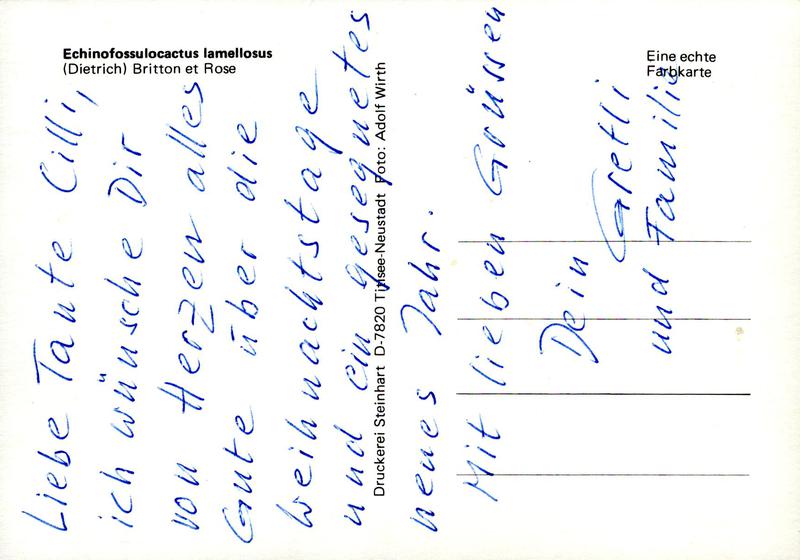 Echinofossulocactus lamellosus
(Dietrich) Britton et Rose
Eine echte
Farbkarte
Druckerei Steinhart D-7820 Titisee-Neustadt Foto: Adolf Wirth
Liebe Tante Cilli,
ich wünsche Dir
von Herzen alles
Gute über die
Weihnachtstage
und ein gesegnetes
neues Jahr.
Mit lieben Grüssen
Dein Gretli
und Familie